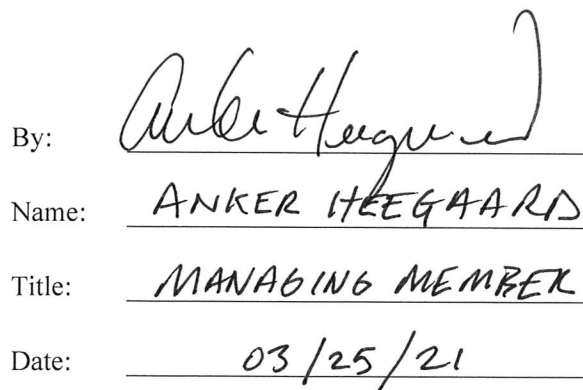 By: Anker Heegaard
Name: ANKER HEEGAARD
Title: MANAGING MEMBER
Date: 03/25/21